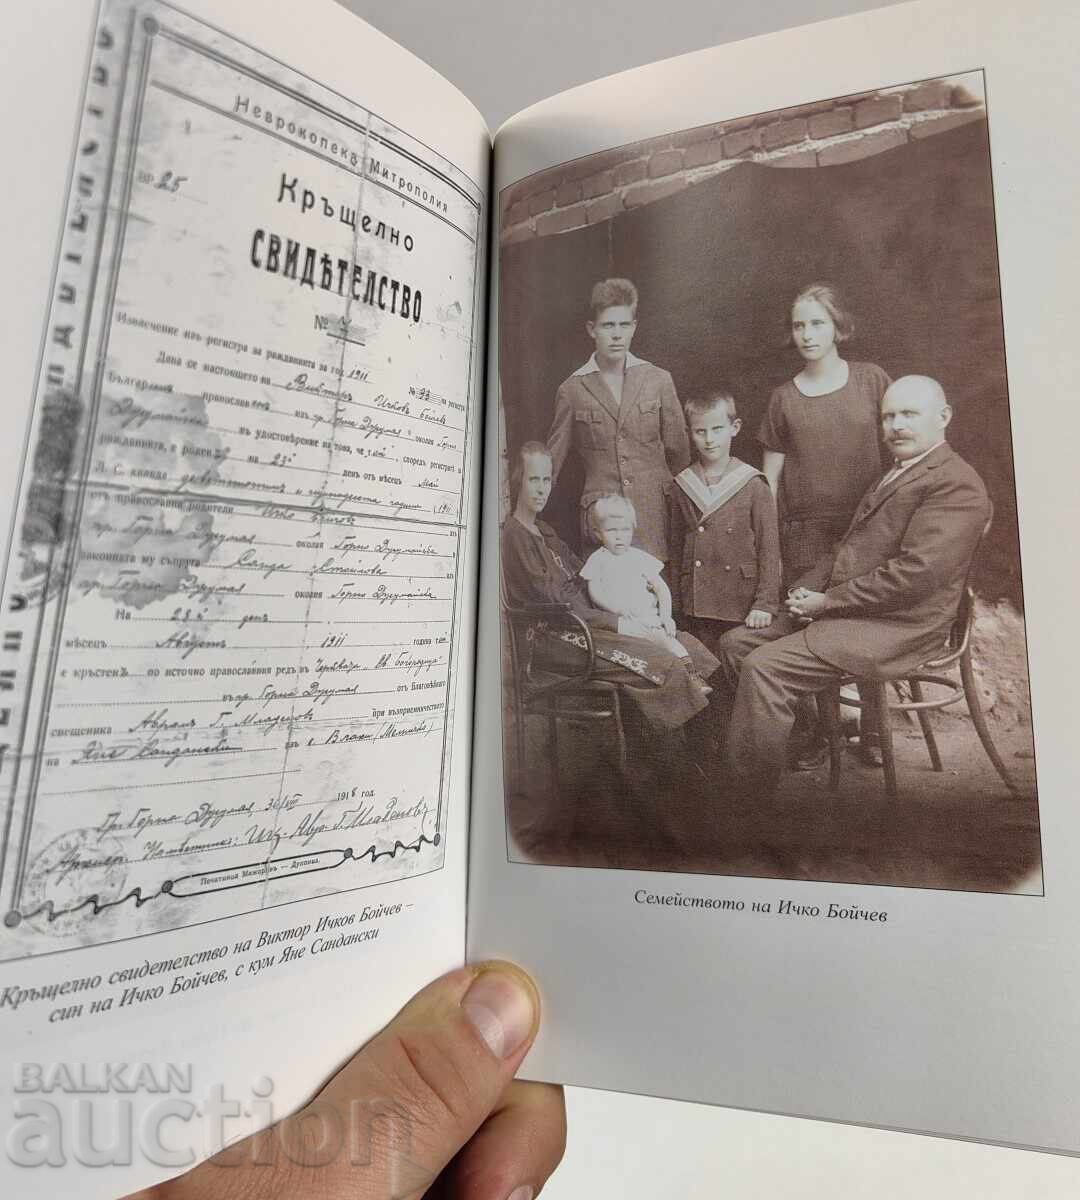 Неврокопска Митрополия
№ 25
Кръщелно
СВИДѢТЕЛСТВО
№ 7
Извлечение изъ регистра за ражданията за год. 1911
№ 33 на регистра
Дава се настоящето на Викторъ Ичковъ Бойчевъ
българинъ православенъ изъ гр. Горна Джумая околия Горно
Джумайска въ удостовѣрение на това, че той, споредъ регистра за
ражданията, е роденъ на 23й день отъ месецъ Май
Л. С. хиляда деветстотинъ и единадесета година (1911)
отъ православни родители Ичко Бойчевъ изъ
гр. Горна Джумая околия Горно Джумайска и
законната му съпруга Санда Стоилова изъ
гр. Горна Джумая околия Горно Джумайска
На 28й день
месецъ Августъ 1911 година той
е кръстенъ по източно православния редъ въ Църквата Св. Богородица
въ гр. Горна Джумая отъ Благоговѣйния
свещеника Аврамъ П. Младеновъ при възприемничеството
на Яне Сандански изъ с. Влахи (Мелнишко)
гр. Горна Джумая, 31/VIII 1918 год.
Архиер. Намѣстникъ: Ик. Авр. П. Младеновъ
Печатница Мажаровъ — Дупница.
Кръщелно свидетелство на Виктор Ичков Бойчев –
син на Ичко Бойчев, с кум Яне Сандански
Семейството на Ичко Бойчев
BALKAN
auction